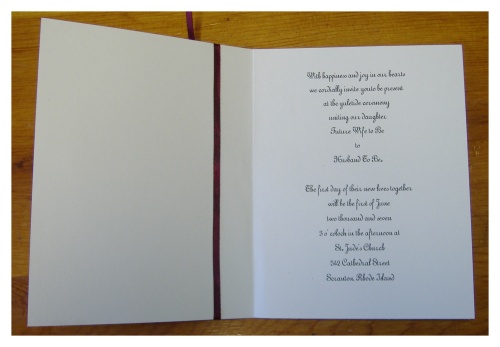 With happiness and joy in our hearts
we cordially invite you to be present
at the yuletide ceremony
uniting our daughter
Future Wife to Be
to
Husband To Be.
The first day of their new lives together
will be the first of June
two thousand and seven
3 o' colock in the afternoon at
St. Jude's Church
342 Cathedral Street
Scranton, Rhode Island